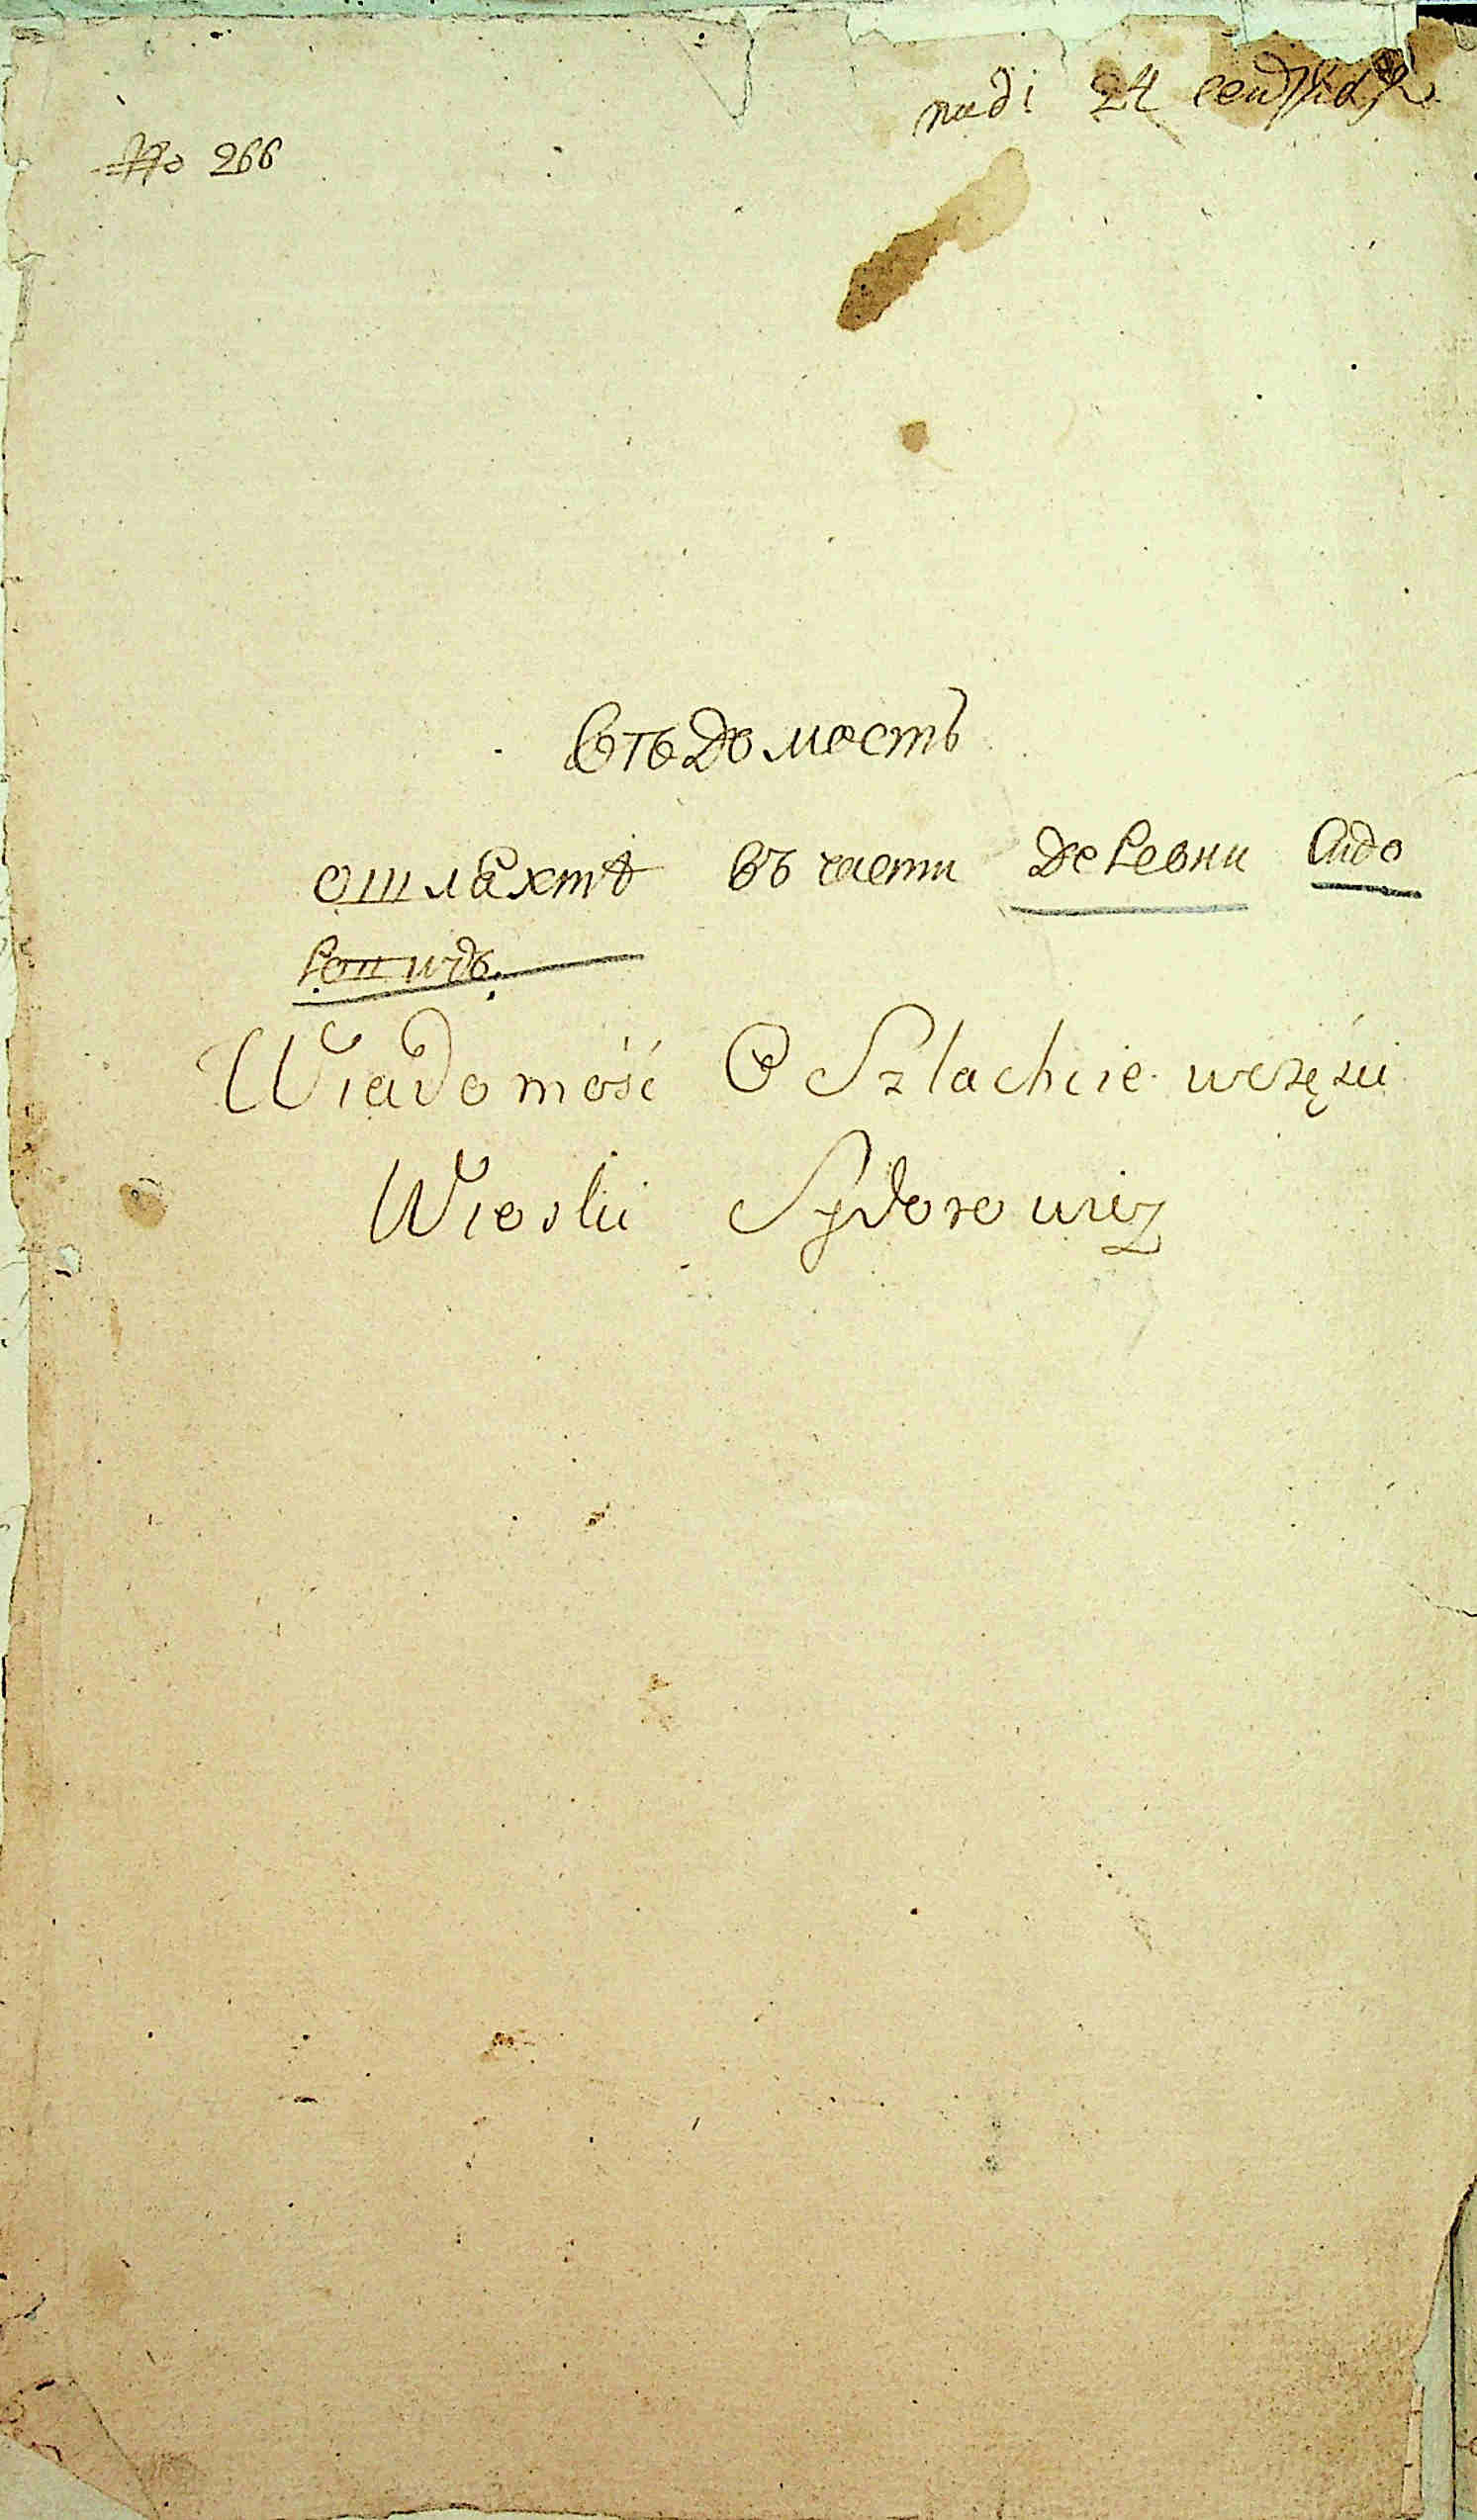 № 266
24
Вѣдомость
о шляхтѣ въ части деревни Сидо
ровичъ.
Wiadomość O Szlachcie wczęsci
Wioski Sydorowicz